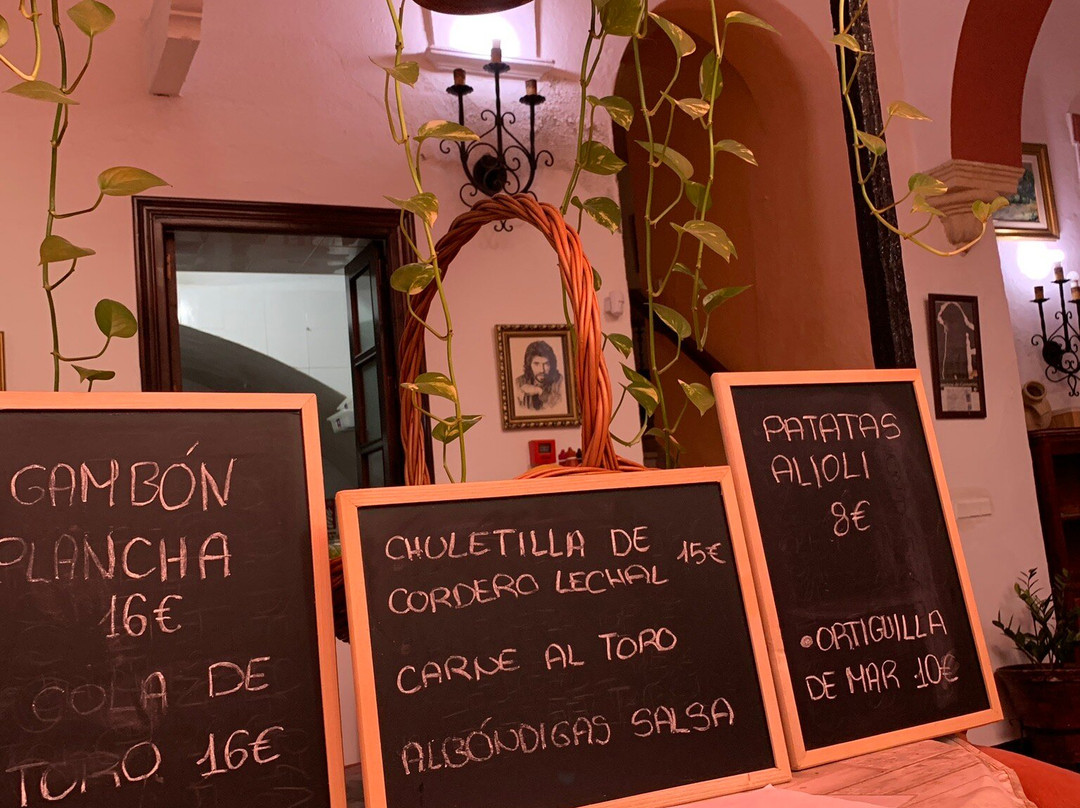 GAMBÓN
PLANCHA
16€
COLA DE
TORO 16€
CHULETILLA DE 15€
CORDERO LECHAL
CARNE AL TORO
ALBÓNDIGAS SALSA
PATATAS
ALIOLI
8€
•ORTIGUILLA
DE MAR 10€